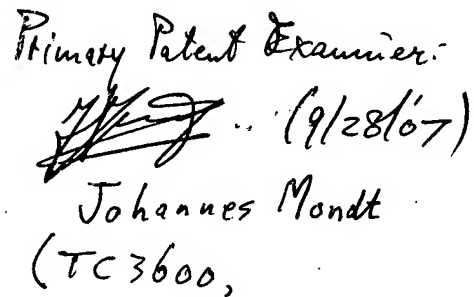 Primary Patent Examiner:
(9/28/07)
Johannes Mondt
(TC3600,